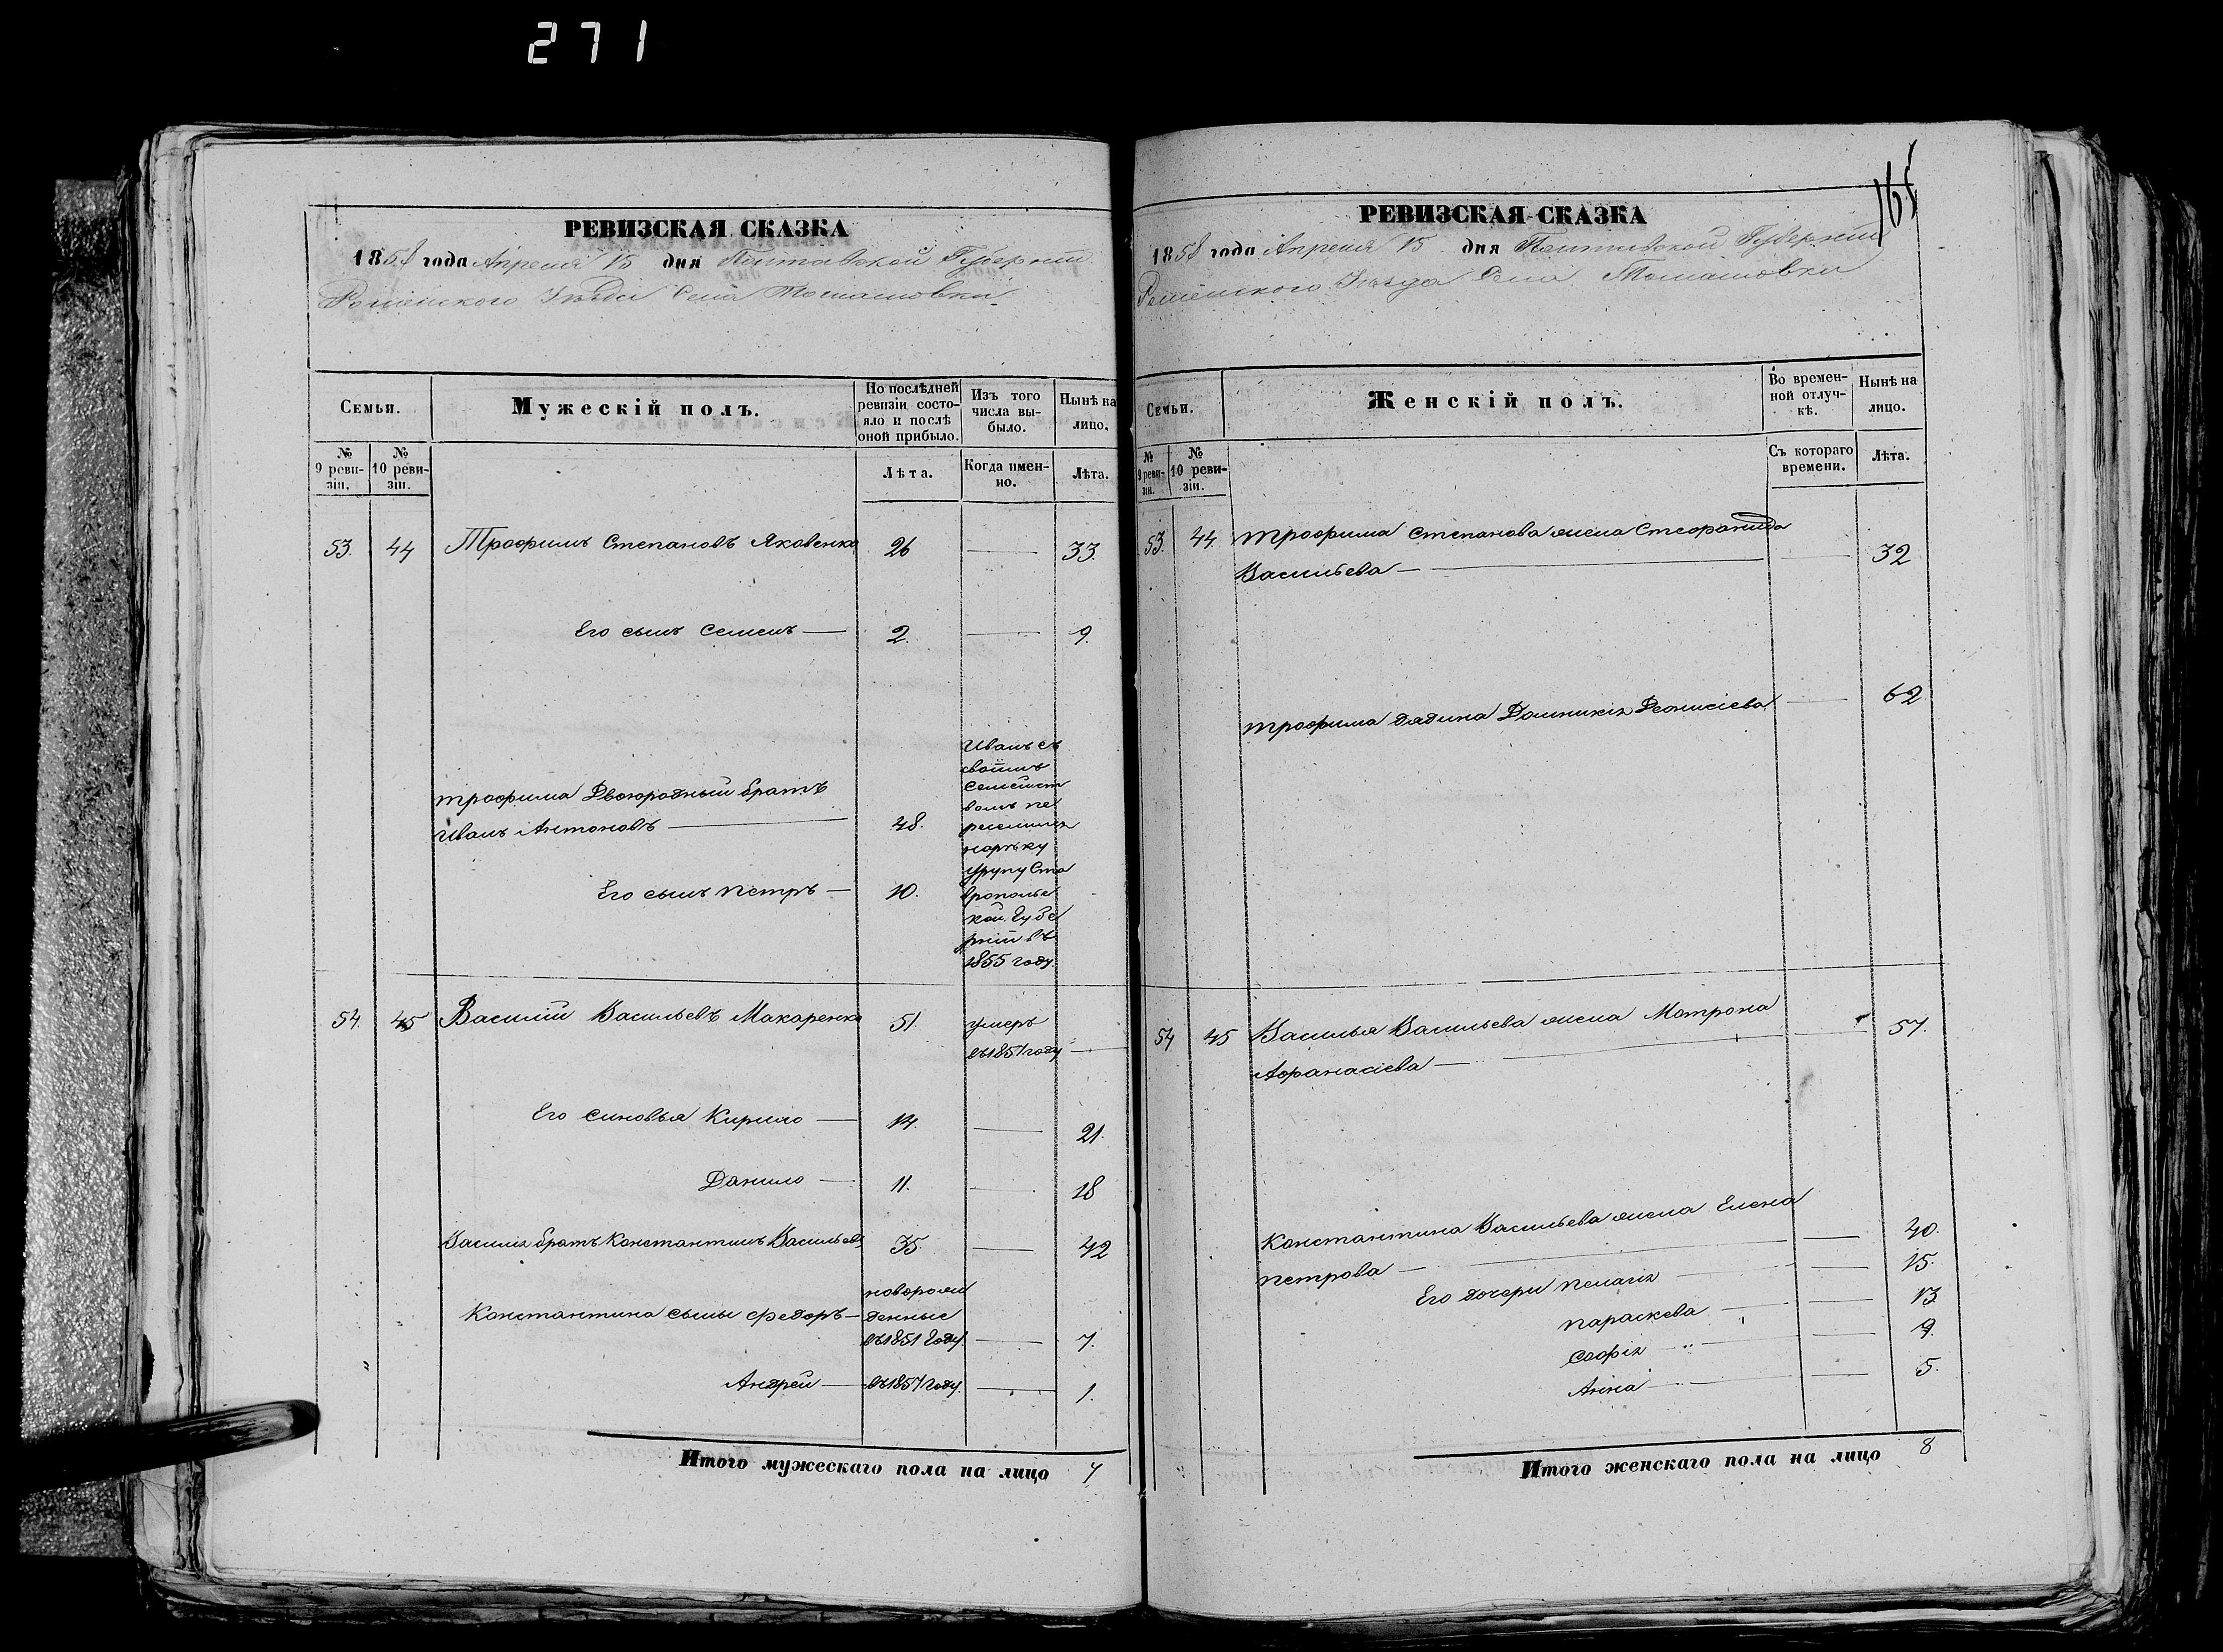 271
РЕВИЗСКАЯ СКАЗКА
1858 года Апреля 15 дня Полтавской Губернии
Роменского Уезда Села Томашовки
Семьи.
Мужескій полъ.
По послѣдней ревизіи состояло и послѣ оной прибыло.
Изъ того числа выбыло.
Нынѣ на лицо.
№ 9 ревизіи.
№ 10 ревизіи.
Лѣта.
Когда именно.
Лѣта.
53. 44 Трофимъ Степановъ Яковенко 26 33.
Его сынъ Семенъ 2. 9.
Трофима Двоюродный братъ
Иванъ Антоновъ 48.
Его сынъ Петръ 10.
Иванъ съ
своимъ
семейст
вомъ пе
реселился
нарѣку
Урупу Ста
вропольс
кой Губе
рніи въ
1855 году.
54. 45 Василій Васильевъ Макаренко 51. умеръ
въ1857году
Его синовья Кирило 14. 21.
Данило 11. 18
Василія братъ Константинъ Васильевъ 35. 42
Константина сыны Федоръ новорож
денные
въ1851 году. 7.
Андрей въ1857году. 1.
Итого мужескаго пола на лицо 7
165
РЕВИЗСКАЯ СКАЗКА
1858 года Апреля 15 дня Полтавской Губернии
Роменского Уезда Села Томашовки
Семьи.
Женскій полъ.
Во временной отлучкѣ.
Нынѣ на лицо.
№ 9 ревизіи.
№ 10 ревизіи.
Съ котораго времени.
Лѣта.
53. 44. Трофима Степанова жена Стефанида
Васильева 32
Трофима дядина Домникія Деонисіева 62
54 45 Василья Васильева жена Матрона
Афанасіева 57.
Константина Васильева жена Елена
Петрова 40.
Его дочери Пелагія 15.
Параскева 13
Софія 9.
Анна 5.
Итого женскаго пола на лицо 8